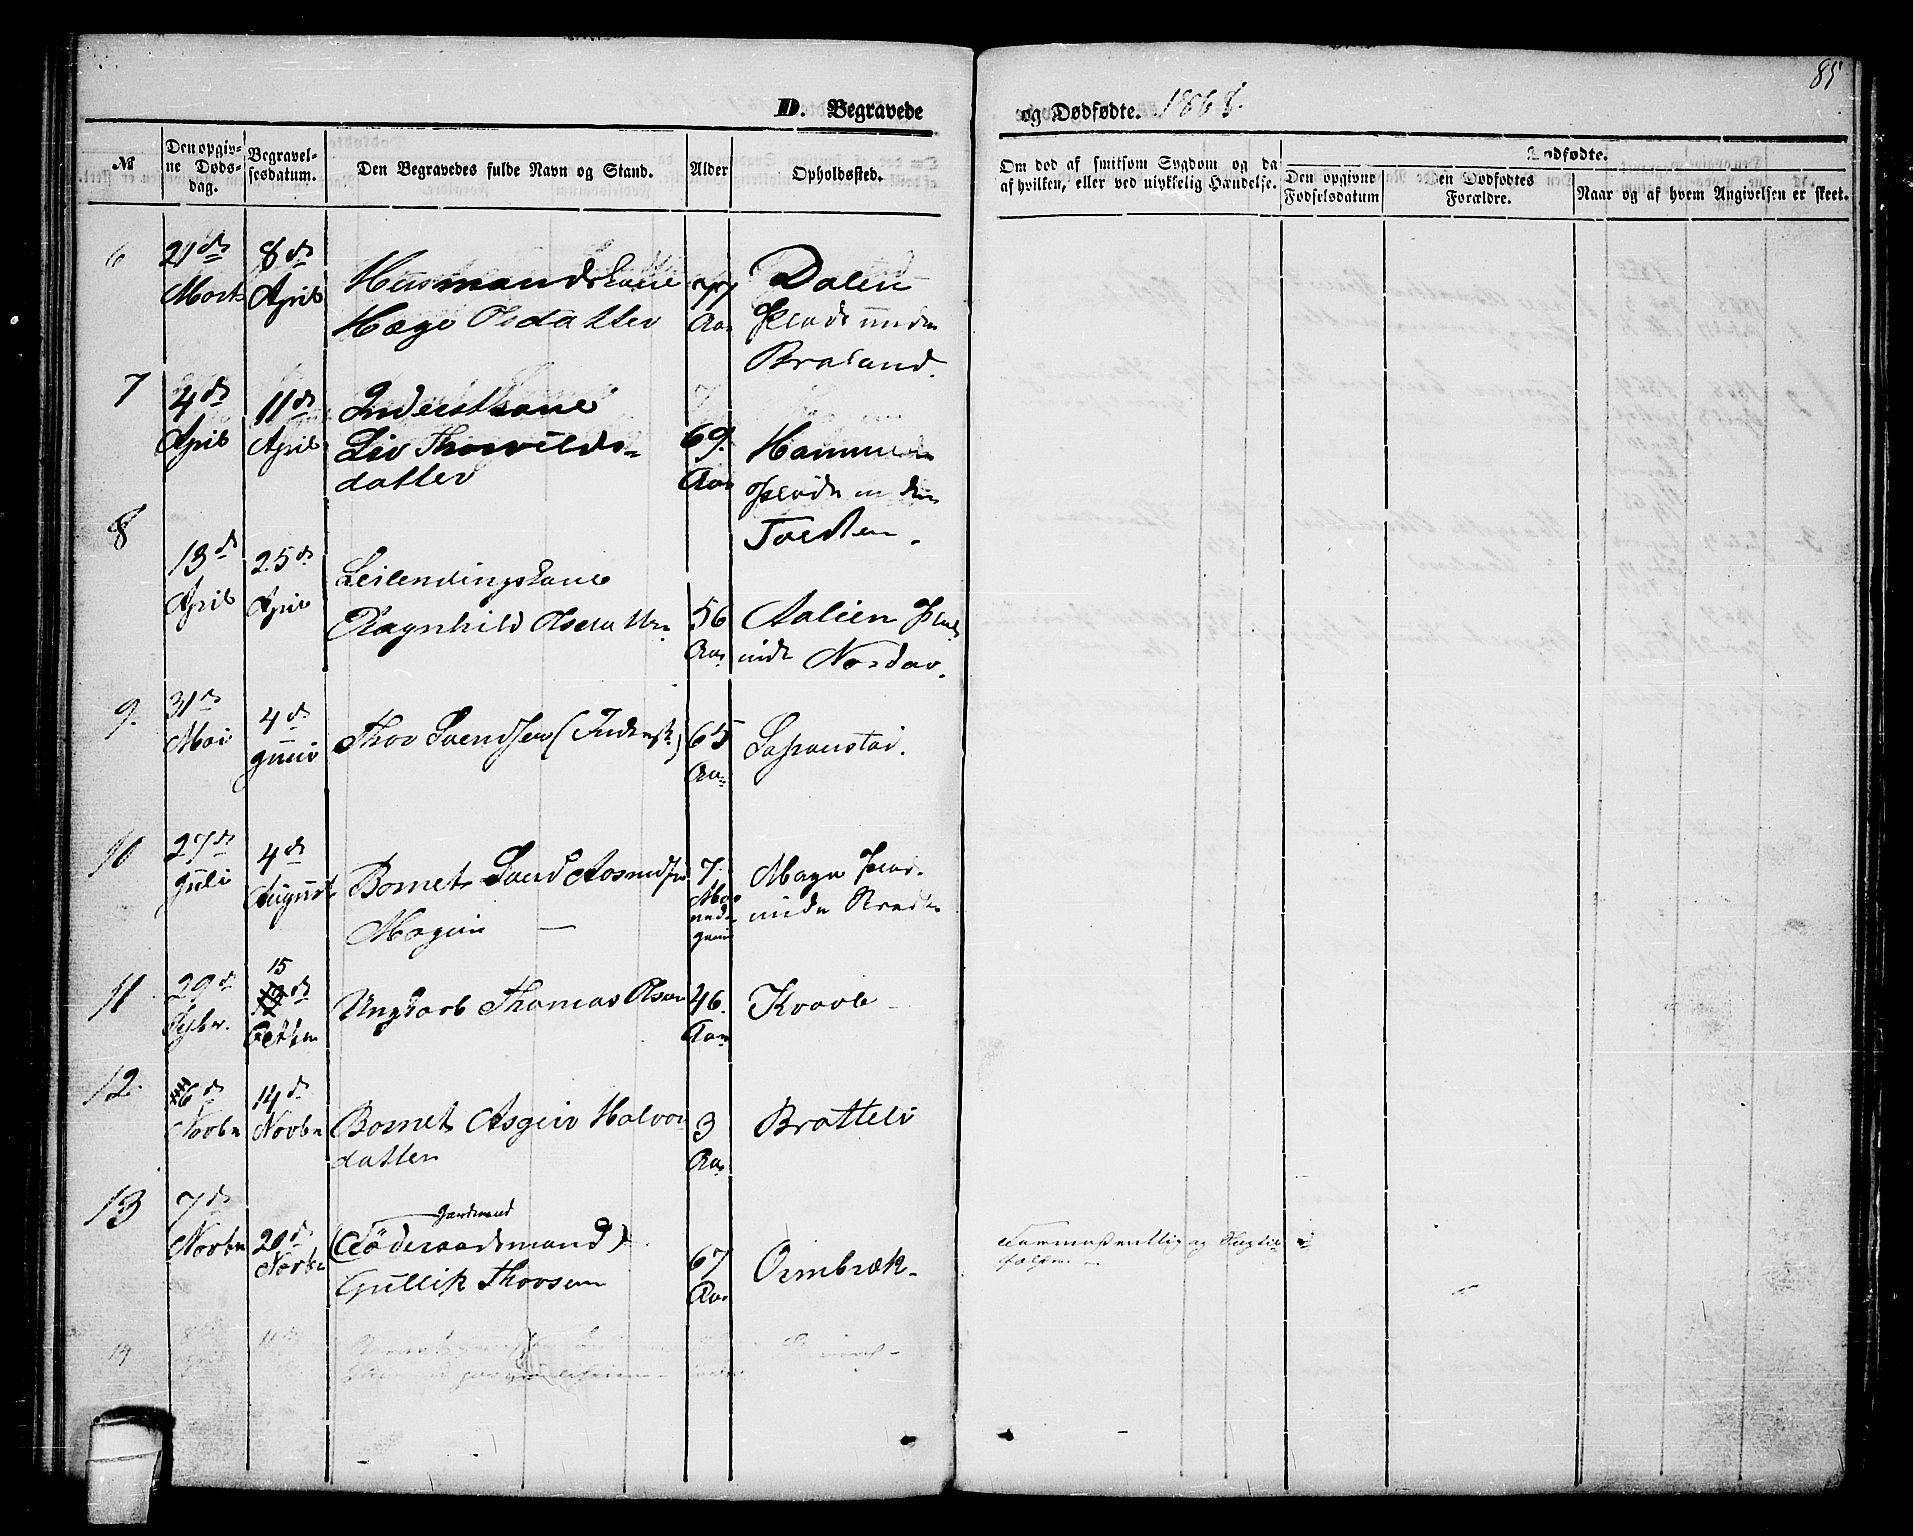 85
D. Begravede og Dødfødte. 1868.
№
Den opgivne Dødsdag.
Begravelsesdatum.
Den Begravedes fulde Navn og Stand.
Alder
Opholdssted.
Om død af smitsom Sygdom og da af hvilken, eller ved ulykkelig Hændelse.
Dødfødte.
Den opgivne Fødselsdatum
Den Dødfødtes Forældre.
Naar og af hvem Angivelsen er skeet.
6
21de Marts
8de April
Husmandskone
Hæge Olsdatter
77 Aar
Dalen
Plads under
Braland.
7
4de April
11de April
Inderstkone
Liv Thorvilds-
datter
69. Aar
Hammeren
Plads under
Torsten.
8
13de April
25de April
Leilendingskone
Ragnhild Olsdatter
56 Aar
Aalien Plads
under Nordar.
9.
31de Mai
4de Juni
Thor Svendsen (Inderst)
65 Aar
10
27de Juli
4de August
Barnet Svend Aasmundsen
Mogen —
7. Maaneder gml
Mogen Plads
under
11
29de Sptbr.
15 de Octbr
Ungkarl Thomas Olsen
46. Aar
Kraale
12.
6de Novbr
14de Novbr
Barnet Asgjer Halvors
datter
3 Aar
Bratteli
13
7de Novbr
20de Novbr
Gardmand
(Föderaadsmand)
Gullik Thorsen
67 Aar
Ormbræk.
14